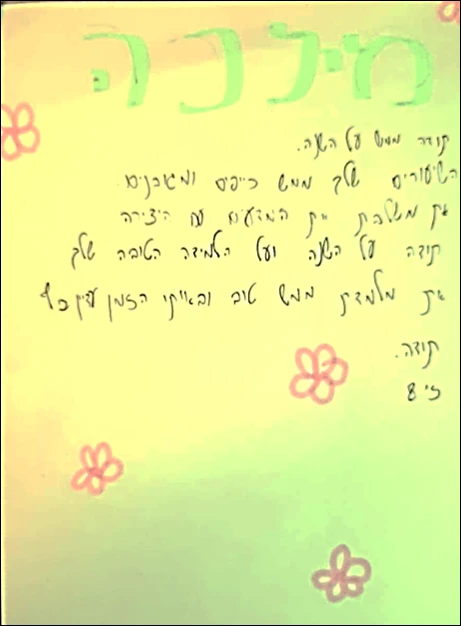 מילכה
תודה ממש על השנה.
השיעורים שלך ממש כייפים ומגוונים
את משלבת את המדעים עם היצירה
תודה על השנה ועל הלמידה הטובה שלך
את מלמדת ממש טוב ובאותו הזמן עדין כיף
תודה.
ז'י 8